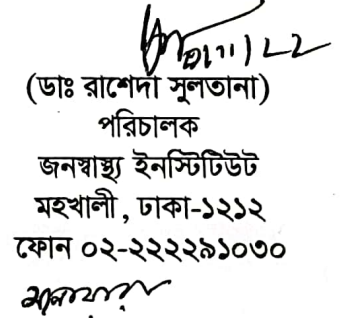 (ডাঃ রাশেদা সুলতানা)
পরিচালক
জনস্বাস্থ্য ইনস্টিটিউট
মহখালী, ঢাকা-১২১২
ফোন ০২-২২২২৯১০৩০